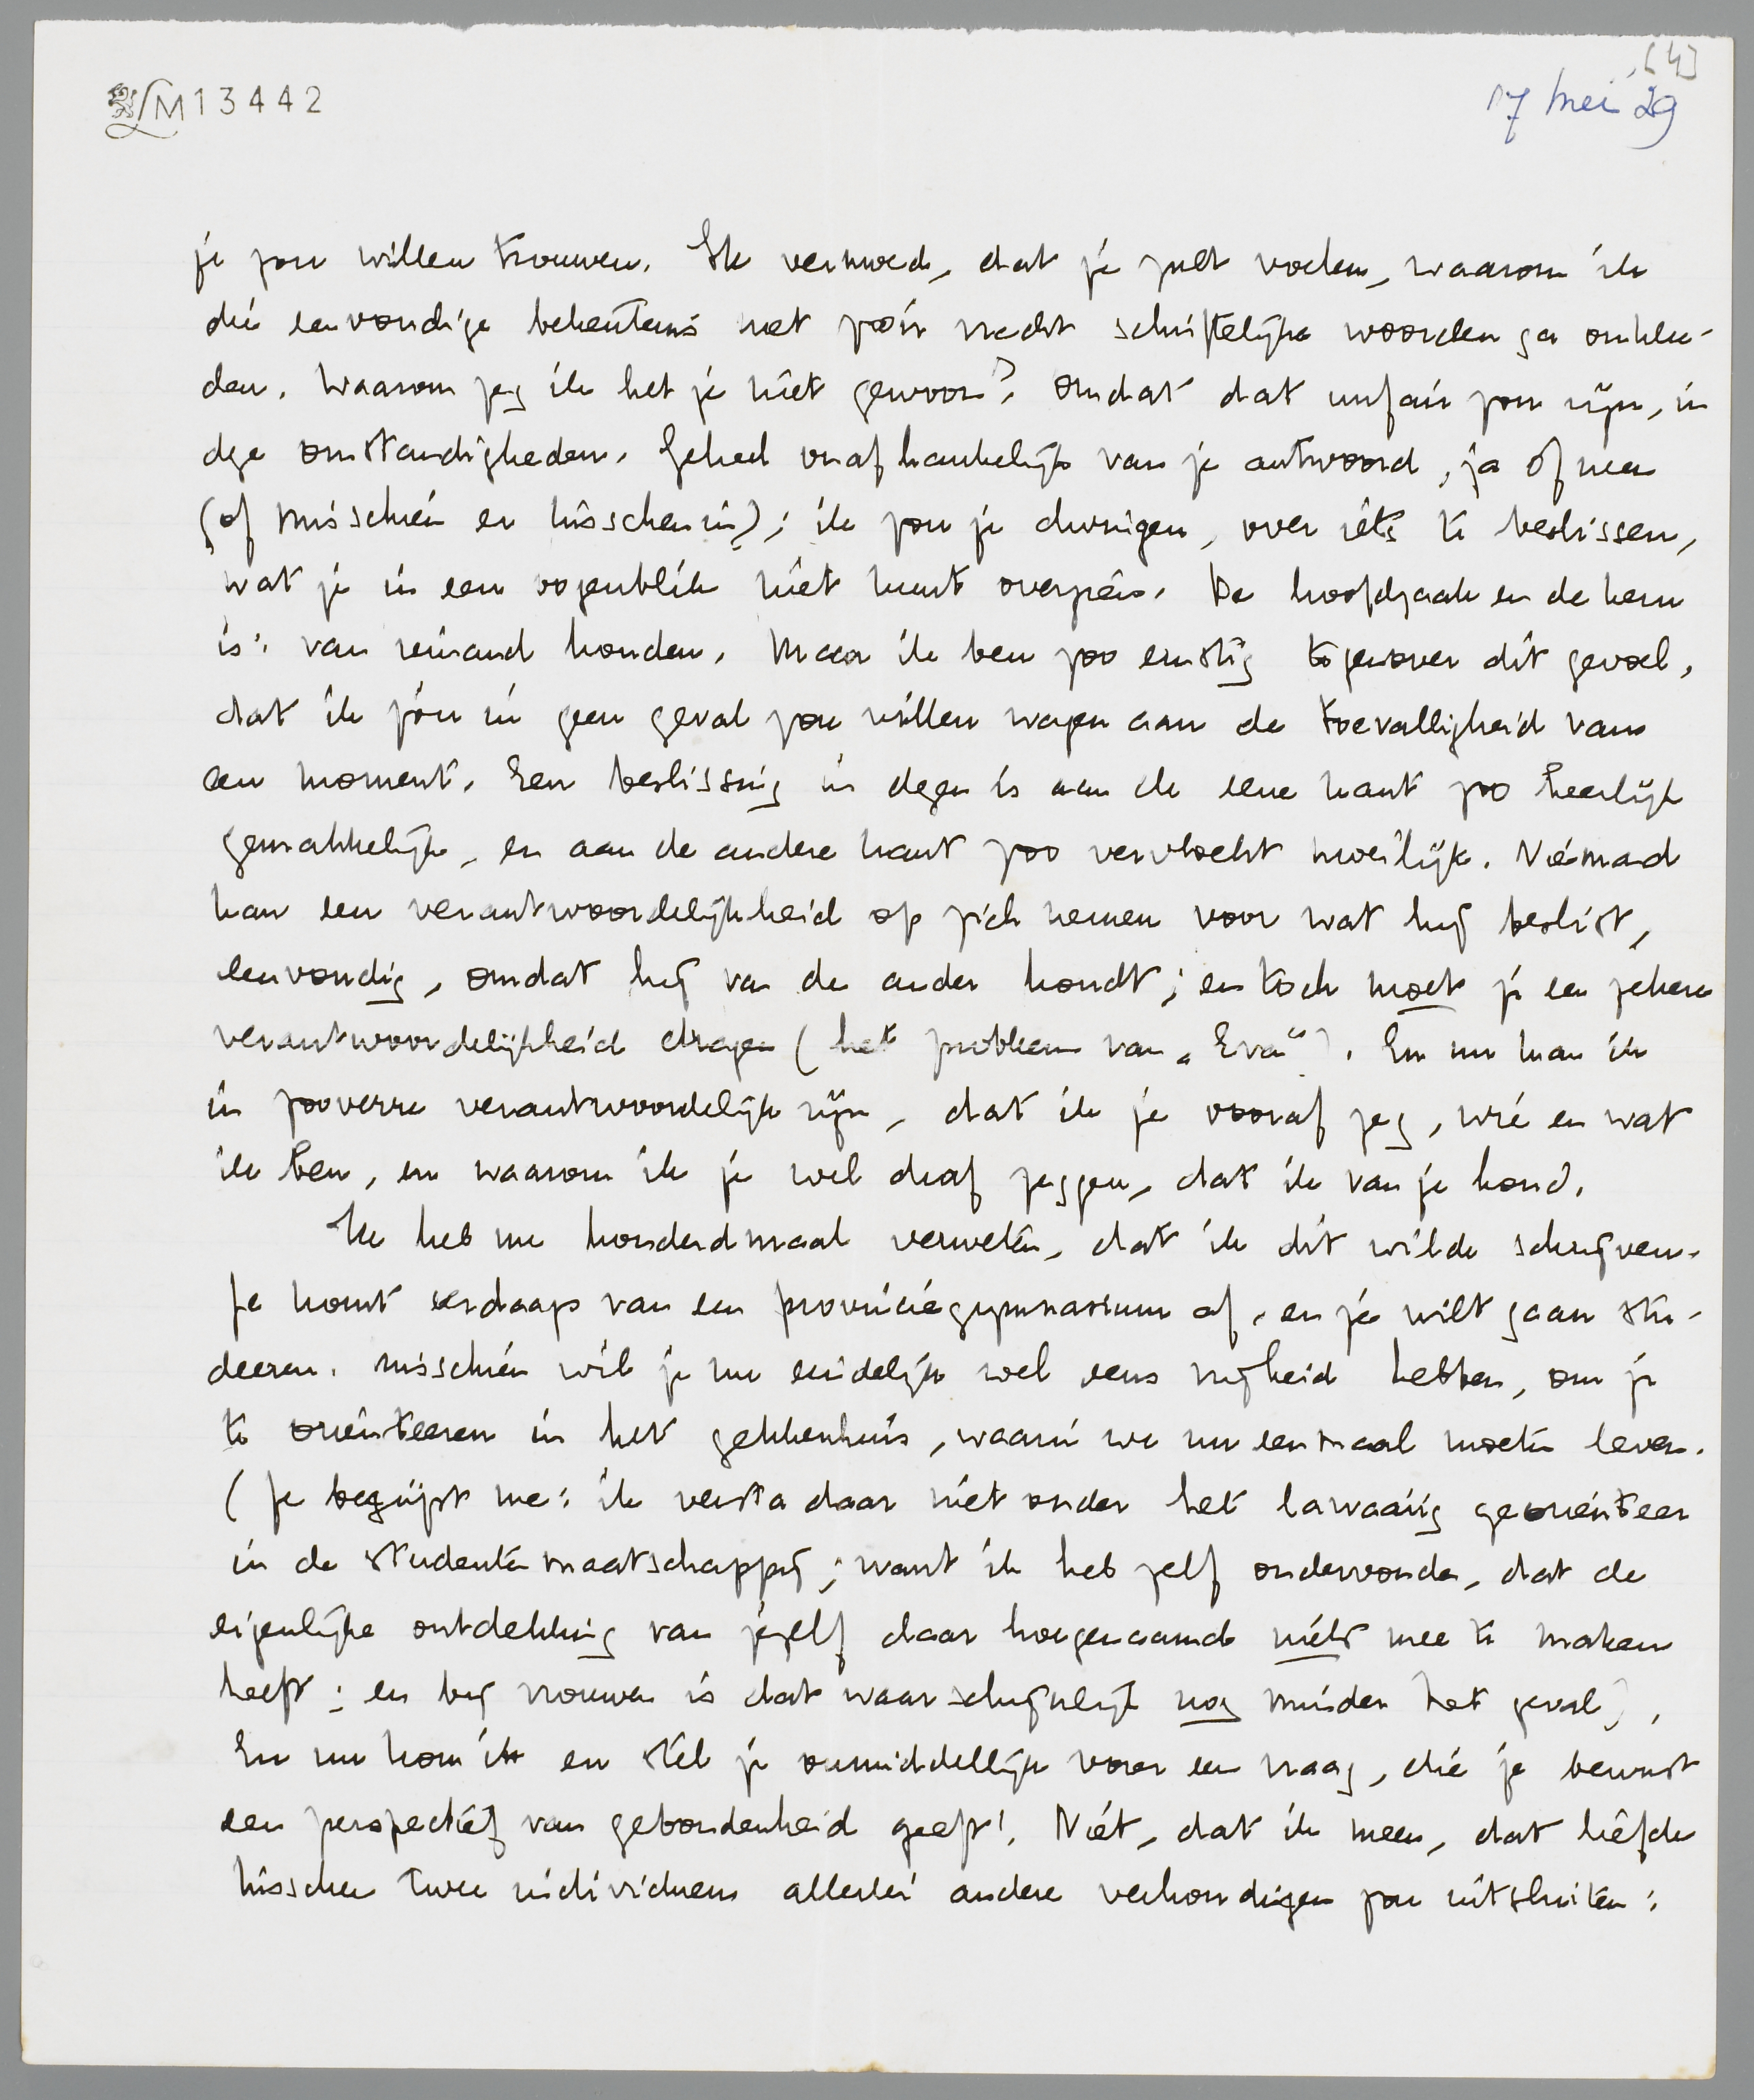 LM13442
[4]
17 mei '29
je zou willen trouwen. Ik vermoed, dat je zult voelen, waarom ik
die eenvoudige bekentenis met zoo'n vracht schriftelijke woorden ga omklee-
den. Waarom zeg ik het je niet gewoon? Omdat dat unfair zou zijn, in
deze omstandigheden. Geheel onafhankelijk van je antwoord, ja of neen
(of misschien er tusschen in); ik zou je dwingen, over iets te beslissen,
wat je in een oogenblik niet kunt overzien. De hoofdzaak en de kern
is: van iemand houden. Maar ik ben zoo ernstig tegenover dit gevoel,
dat ik jóu in geen geval zou willen wagen aan de toevalligheid van
een moment. Een beslissing in dezen is aan de eene kant zoo heerlijk
gemakkelijk, en aan de andere kant zoo vervloekt moeilijk. Niemand
kan een verantwoordelijkheid op zich nemen voor wat hij beslist,
eenvoudig, omdat hij van de ander houdt; en toch moet je een zekere
verantwoordelijkheid dragen (het probleem van „Eva"). En nu kan ik
in zooverre verantwoordelijk zijn, dat ik je vooraf zeg, wie en wat
ik ben, en waarom ik je wel durf zeggen, dat ik van je houd.
Ik heb me honderdmaal verweten, dat ik dit wilde schrijven.
Je komt eerdaags van een provinciegymnasium af, en je wilt gaan stu-
deeren. Misschien wil je nu eindelijk wel eens vrijheid hebben, om je
te oriënteeren in het gekkenhuis, waarin we nu eenmaal moeten leven.
(Je begrijpt me: ik versta daar niet onder het lawaaiig georiënteer
in de studentenmaatschappij; want ik heb zelf ondervonden, dat de
eigenlijke ontdekking van jezelf daar hoegenaamd niets mee te maken
heeft; en bij vrouwen is dat waarschijnlijk nog minder het geval).
En nu kom ik en stel je onmiddellijk voor een vraag, die je bewust
een perspectief van gebondenheid geeft! Niet, dat ik meen, dat liefde
tusschen twee individuen allerlei andere verhoudingen zou uitsluiten;